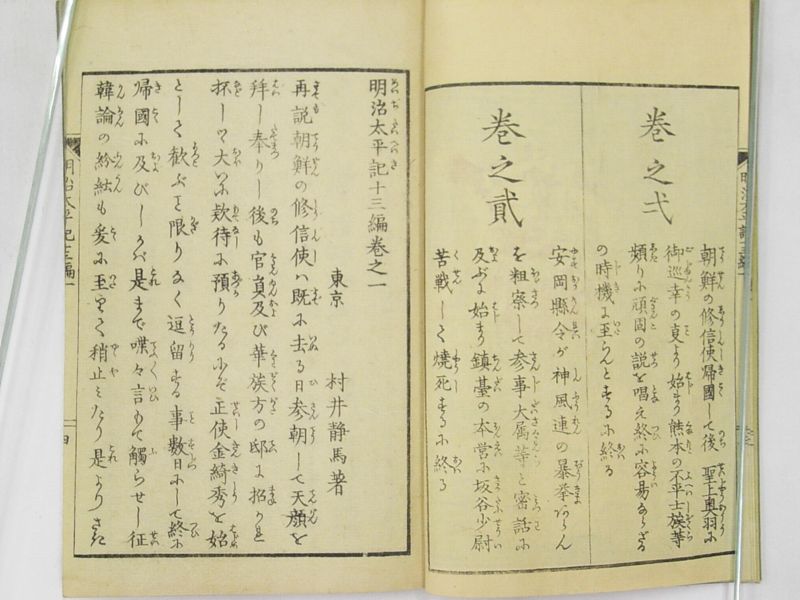 卷之弌
朝鮮の修信使帰國して後　聖上奥羽に
御巡幸の㕝より始まり熊本の不平士族等
頻りに頑固の説を唱え終に容易ならざる
の時機に至らんとするに終る
卷之貳
安岡縣令が神風連の暴挙あらん
を粗察して参事大属等と密話に
及ぶに始まり鎮臺の本営に坂谷少尉
苦戦して焼死するに終る
明治太平記十三編卷之一
東京　村井静馬著
再説朝鮮の修信使は既に去る日参朝して天顔を
拜し奉りし後も官員及び華族方の邸に招かれ
抔して大いに欵待に預りたるにぞ正使金綺秀を始
として歓ぶこと限りなく逗留する事数日にして終に
帰國に及びしが是まで喋々言もて觸らせし征
韓論の紛紜も爰に至りて稍止みたり是より
明治太平記十三編一